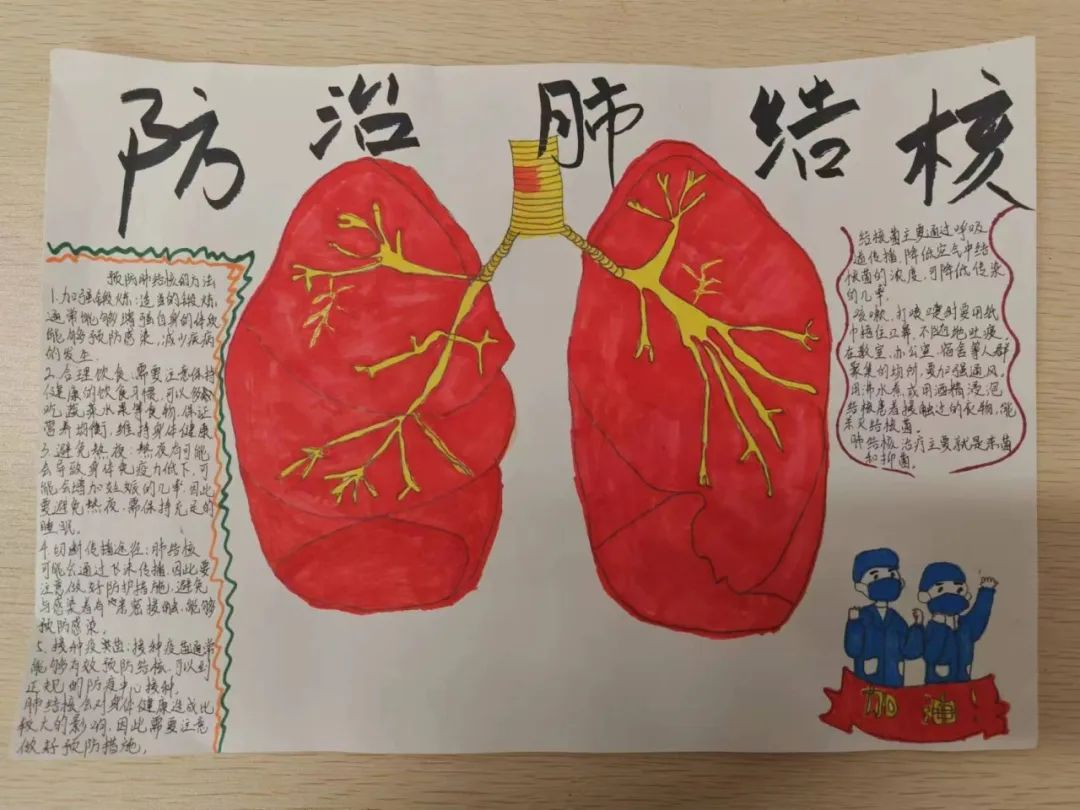 防治肺结核
预防肺结核的方法
1.加强锻炼:适当的锻炼,
通常能够增强自身的体质
能够预防感染,减少疾病
的发生.
2.合理饮食,需要注意保持
健康的饮食习惯,可以多
吃蔬菜水果等食物,保证
营养均衡,维持身体健康
3.避免熬夜:熬夜有可能
会导致身体免疫力低下,可
能会增加的几率,因此
要避免熬夜,需保持充足的
睡眠.
4.切断传播途径:肺结核
可能会通过飞沫传播,因此要
注意做好防护措施,避免
与感染者有密接触,能够
预防感染.
5.接种疫苗:接种疫苗通常
能够有效预防结核,可以到
正规的防疫中心接种.
肺结核会对身体健康造成比
较大的影响,因此需要注意
做好预防措施,
结核菌主要通过呼吸
道传播,降低空气中结
核菌的浓度,可降低传染
的几率.
咳嗽,打喷嚏时要用纸
巾捂住口鼻,不随地吐痰,
在教室,办公室,宿舍等人群
聚集的场所,要加强通风.
用沸水煮,或用酒精浸泡
结核患者接触过的衣物,能
杀灭结核菌.
肺结核治疗主要就是杀菌
和抑菌.
加油!